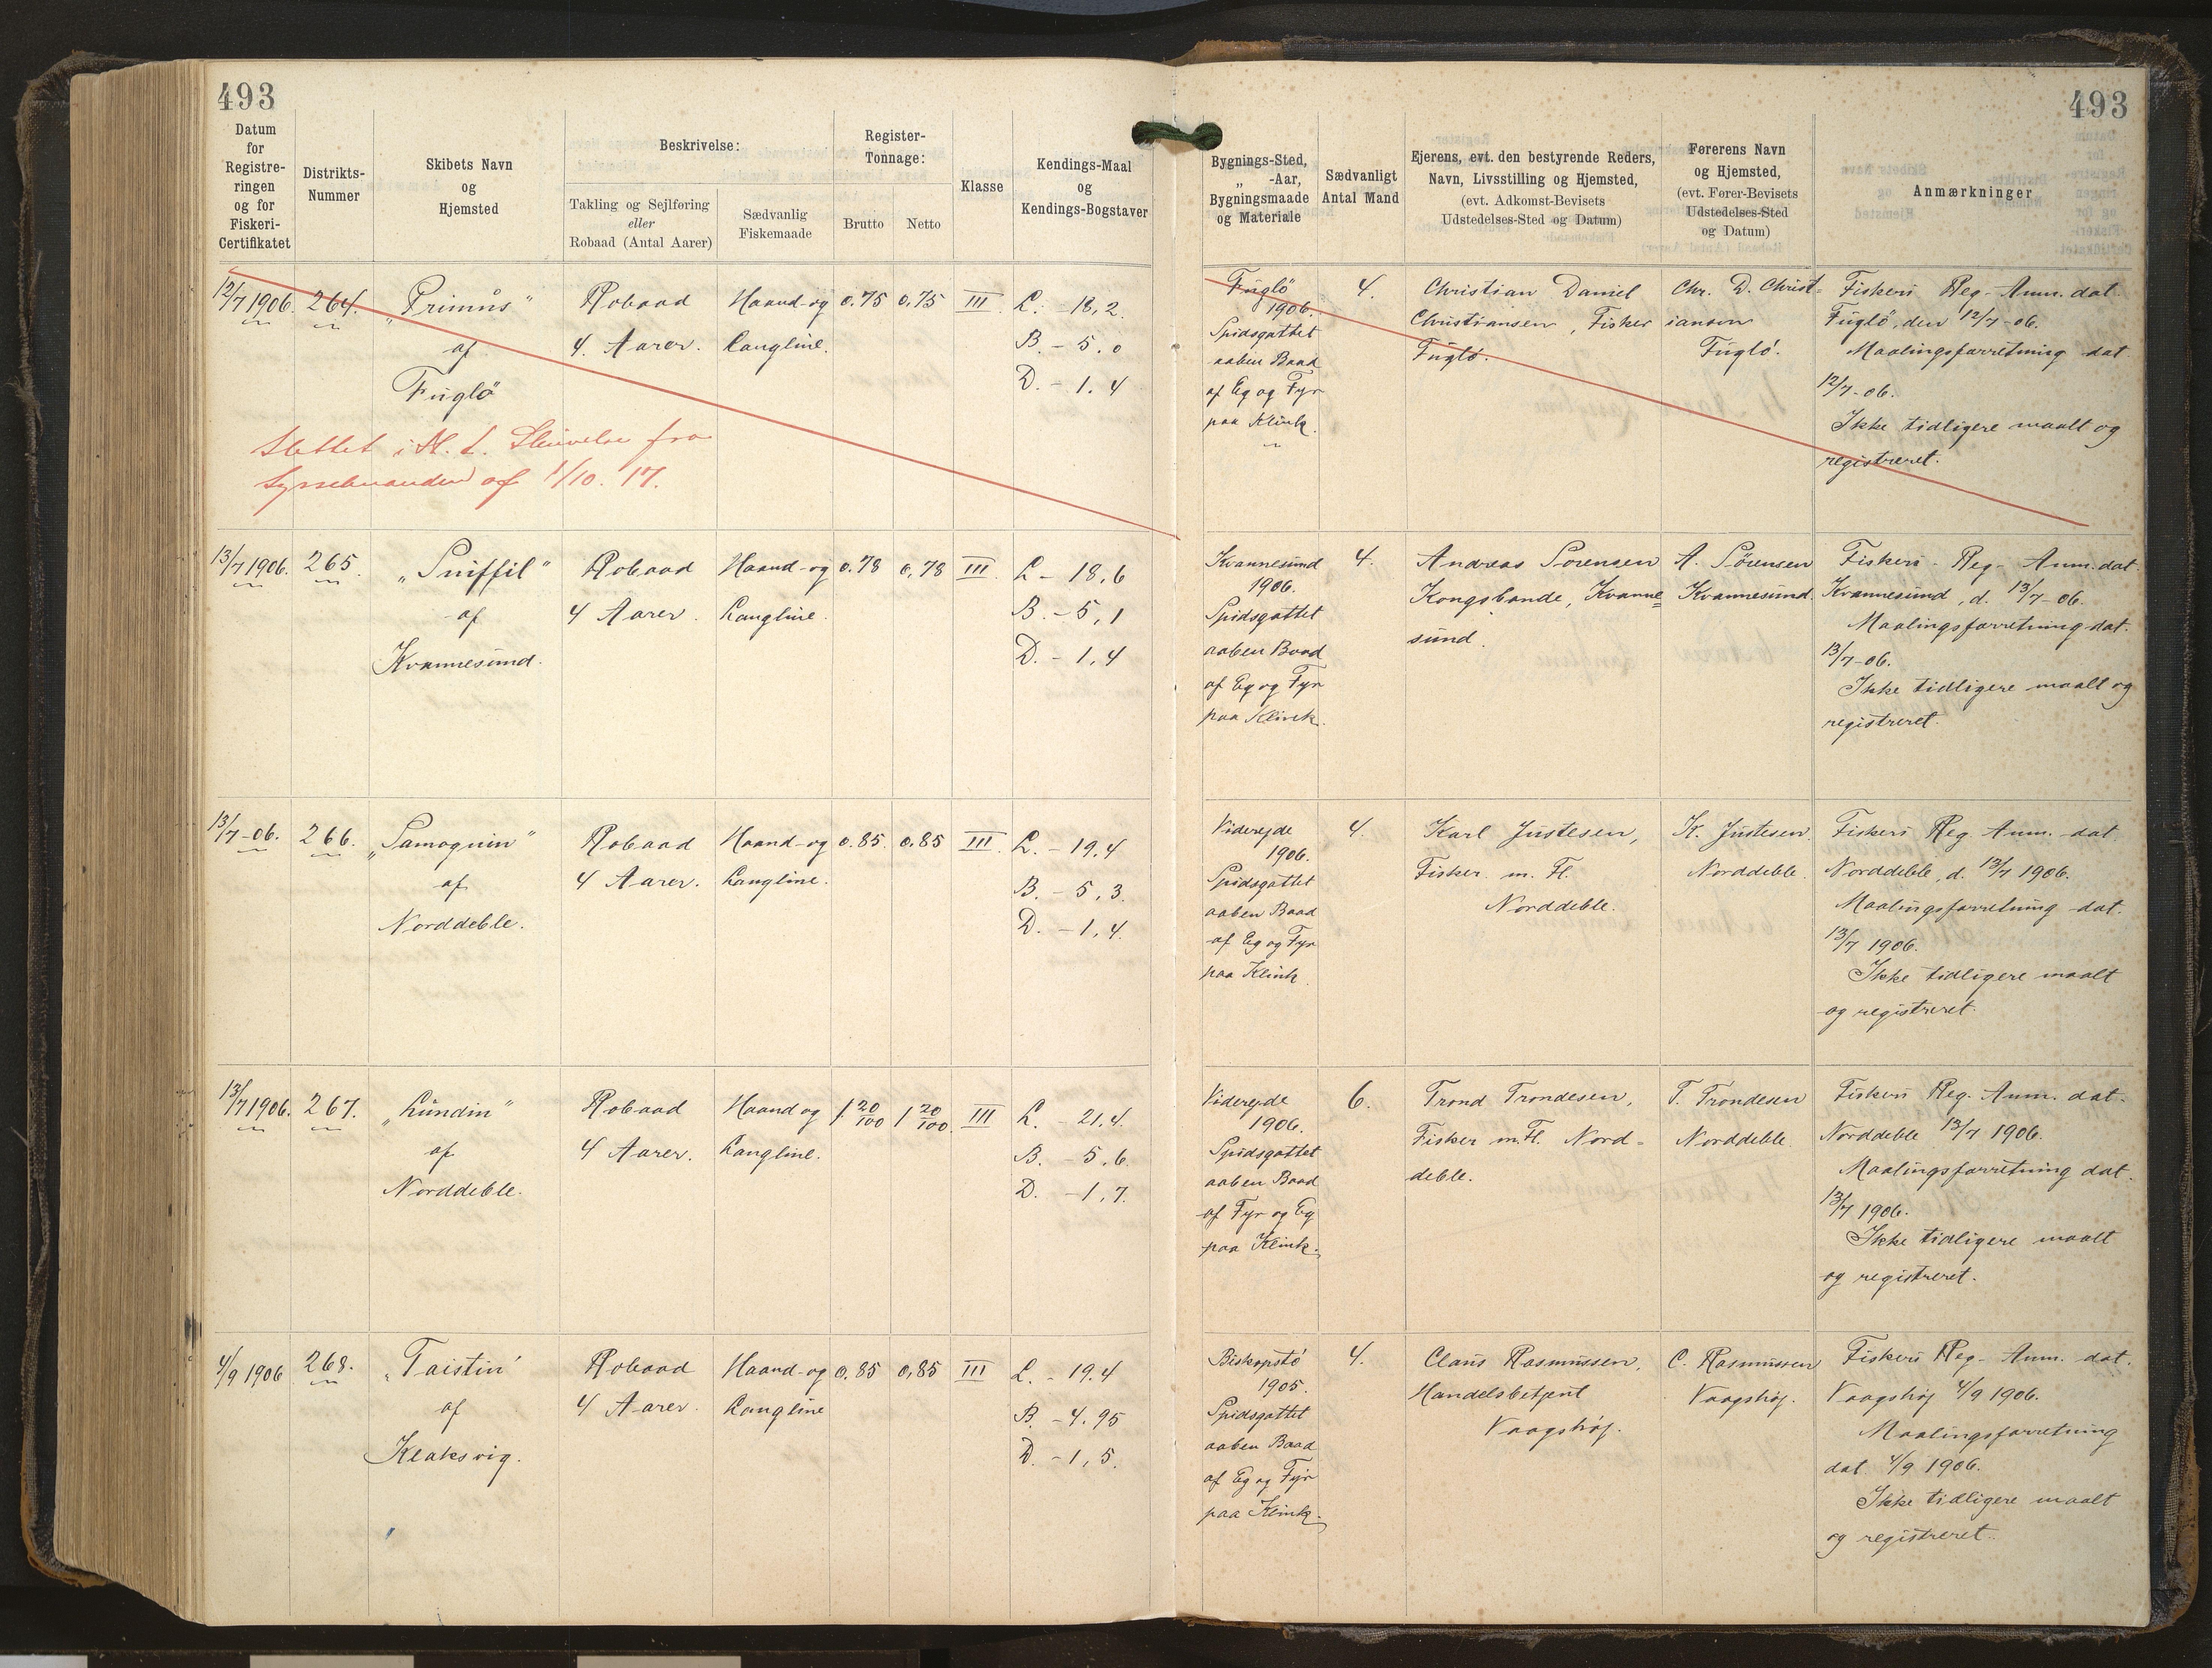 493
493
Datum for Registreringen og for Fiskeri-Certifikatet
Distrikts-Nummer
Skibets Navn og Hjemsted
Beskrivelse:
Takling og Sejlføring eller Robaad (Antal Aarer)
Sædvanlig Fiskemaade
Register-Tonnage:
Brutto
Netto
Klasse
Kendings-Maal og Kendings-Bogstaver
Bygnings-Sted, „ -Aar, Bygningsmaade og Materiale
Sædvanligt Antal Mand
Ejerens, evt. den bestyrende Reders, Navn, Livsstilling og Hjemsted, (evt. Adkomst-Bevisets Udstedelses-Sted og Datum)
Førerens Navn og Hjemsted, (evt. Fører-Bevisets Udstedelses-Sted og Datum)
Anmærkninger
12/7 1906. 264. „Primus" Robaad Haand-og 0.75 0,75 III. L. - 18,2.
af 4. Aarer. Langline. B. - 5.0
Fuglö D. - 1.4
Slettet i H. t. Skrivelse fra
Sysselmanden af 1/10. 17.
Fuglö 4. Christian Daniel Chr. D. Christ= Fiskeri Reg- Anm. dat.
1906. Christiansen, Fisker iansen Fuglö, den 12/7-06.
Spidsgattet Fuglö. Fuglö. Maalingsforretning dat.
aaben Baad 12/7-06.
af Eg og Fyr Ikke tidligere maalt og
paa Klink. registreret.
13/7 1906. 265. „Sniffil" Robaad Haand-og 0.78 0,78 III. L - 18,6
af 4 Aarer. Langline. B. - 5,1
Kvannesund. D. - 1,4
Kvannesund 4. Andreas Sörensen A. Sörensen Fiskeri- Reg- Anm. dat.
1906. Kongsbonde, Kvanne= Kvannesund. Kvannesund, d. 13/7-06.
Spidsgattet sund. Maalingsforretning dat.
aaben Baad 13/7-06.
af Eg og Fyr Ikke tidligere maalt og
paa Klink. registreret.
13/7-06. 266. „Samoguin" Robaad Haand-og 0.85. 0,85 III. L. - 19,4
af 4 Aarer. Langline. B. - 5,3.
Norddeble. D. - 1,4.
Viderejde 4. Karl Justesen, K. Justesen. Fiskeri Reg. Anm. dat.
1906. Fisker m. Fl. Norddeble. Norddeble, d. 13/7 1906.
Spidsgattet Norddeble. Maalingsforretning dat.
aaben Baad 13/7 1906.
af Eg og Fyr Ikke tidligere maalt
paa Klink. og registreret.
13/7 1906. 267. „Lundin" Robaad Haand og 1 20/100 1 20/100. III L. - 21,4.
af 4 Aarer. Langline. B. - 5,6.
Norddeble. D. - 1,7.
Viderejde 6. Trond Trondesen, T. Trondesen Fiskeri Reg. Anm. dat.
1906. Fisker m.Fl. Nord= Norddeble. Norddeble 13/7 1906.
Spidsgattet deble. Maalingsforretning dat.
aaben Baad 13/7 1906.
af Fyr og Eg Ikke tidligere maalt
paa Klink. og registreret.
4/9 1906 268. „Taistin" Robaad Haand-og 0.85 0,85 III L. - 19.4
af 4 Aarer. Langline B. - 4.95
Klaksvig. D. - 1,5.
Biskopstö 4. Claus Rasmussen, C. Rasmussen Fiskeri Reg- Anm. dat.
1905. Handelsbetjent Vaagshöj. Vaagshöj 4/9 1906.
Spidsgattet Vaagshöj. Maalingsforretning
aaben Baad dat. 4/9 1906.
af Eg og Fyr Ikke tidligere maalt
paa Klink. og registreret.